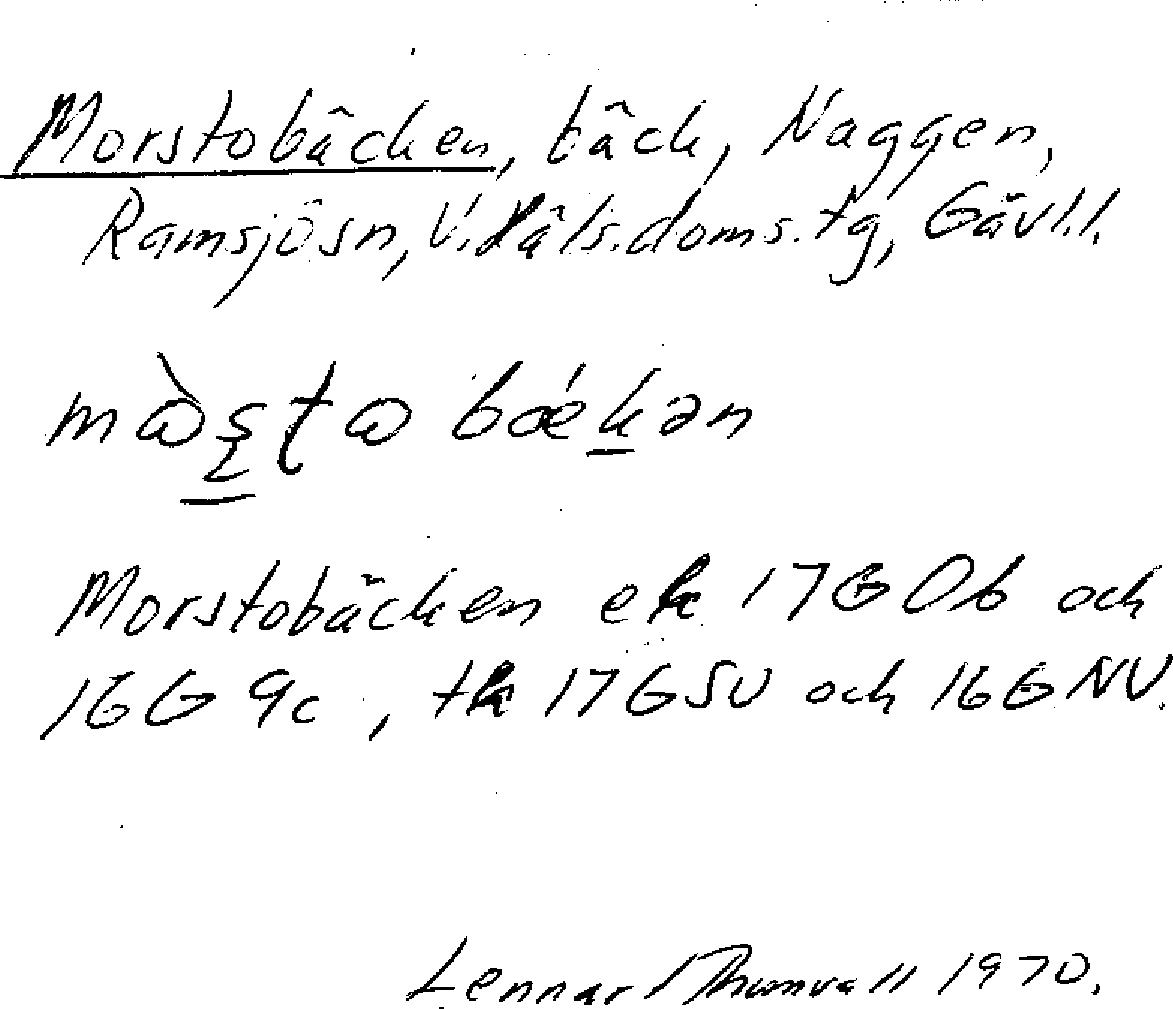 Morstobäcken, bäck, Naggen,
Ramsjö sn, V. Häls. doms. tg, Gävl. l.
mɷ̀ʂʈɷ bǽkən
Morstobäcken ek 17G 0b och
16G 9c, tk 17G SV och 16G NV.
Lennart Thunvall 1970.